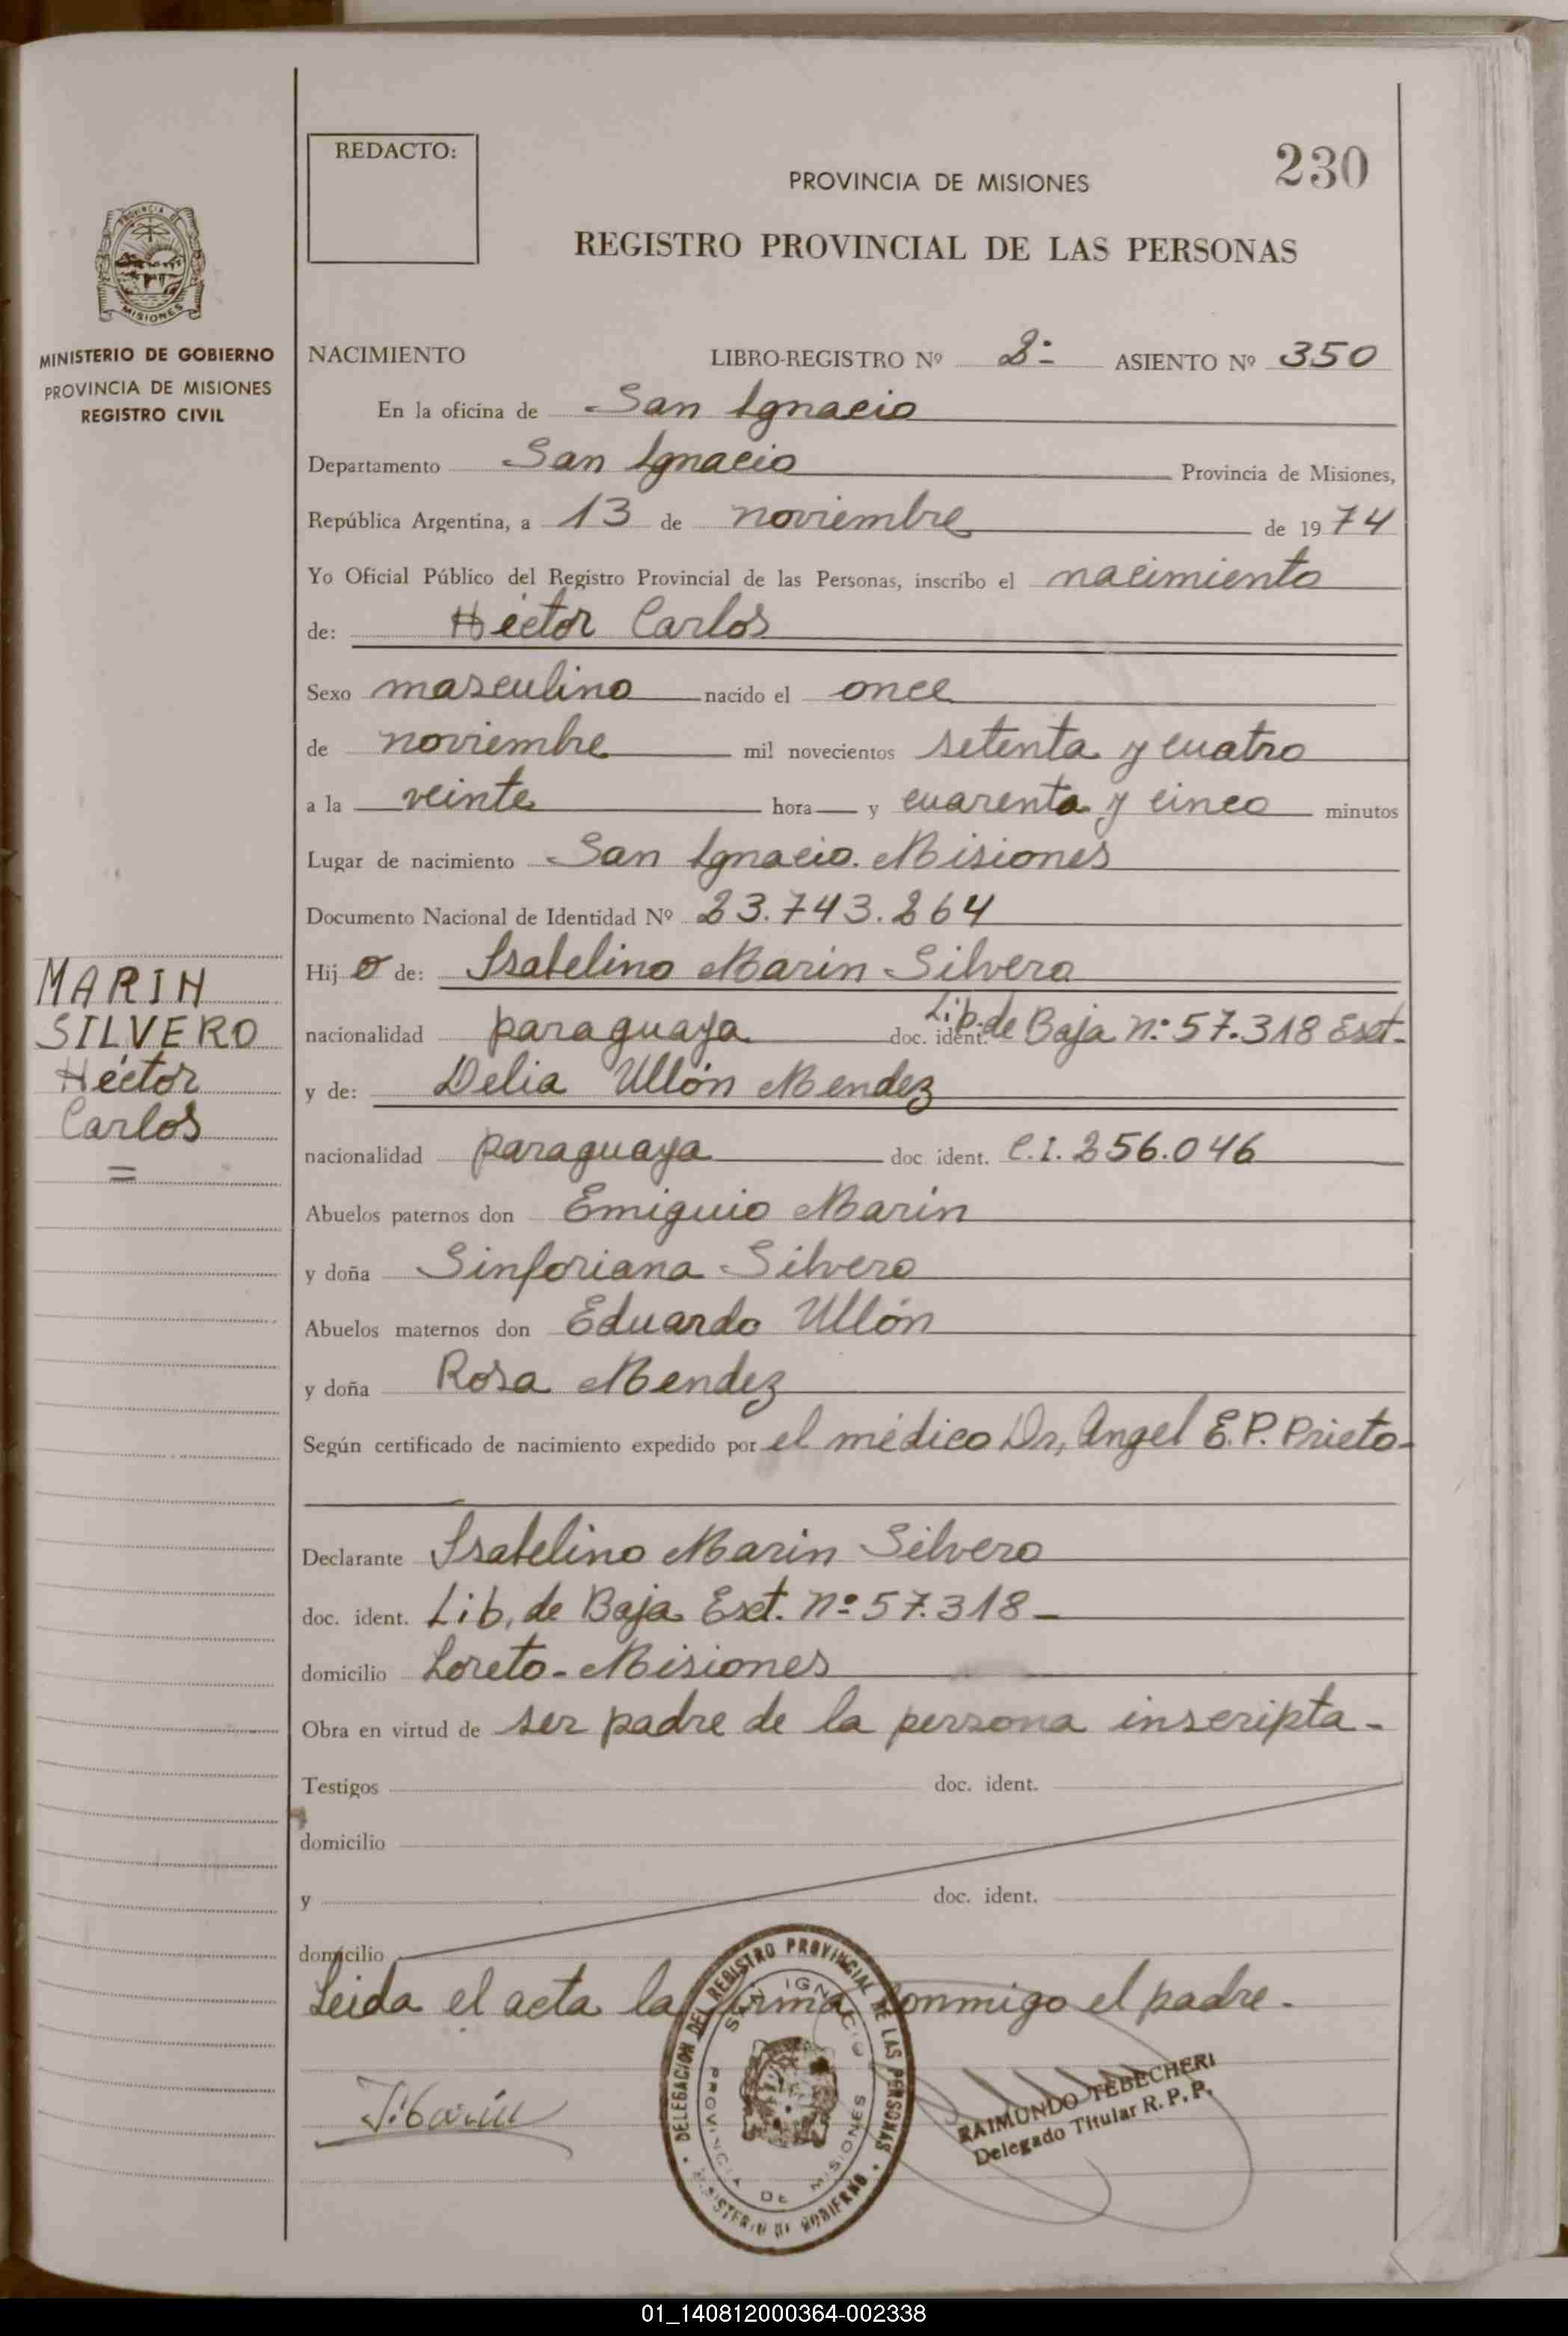 230
REDACTO:
PROVINCIA DE MISIONES
REGISTRO PROVINCIAL DE LAS PERSONAS
PROVINCIA DE
MISIONES
MINISTERIO DE GOBIERNO
PROVINCIA DE MISIONES
REGISTRO CIVIL
NACIMIENTO LIBRO-REGISTRO Nº 2º ASIENTO Nº 350
En la oficina de San Ignacio
Departamento San Ignacio Provincia de Misiones,
República Argentina, a 13 de noviembre de 1974
Yo Oficial Público del Registro Provincial de las Personas, inscribo el nacimiento
de: Héctor Carlos
Sexo masculino nacido el once
de noviembre mil novecientos setenta y cuatro
a la veinte hora y cuarenta y cinco minutos
Lugar de nacimiento San Ignacio. Misiones
Documento Nacional de Identidad Nº 23.743.264
MARIN
SILVERO
Héctor
Carlos
=
Hijo de: Isabelino Marin Silvero
nacionalidad paraguaya doc. ident. Lib. de Baja nº 57.318 Esct.
y de: Delia Ullón Mendez
nacionalidad paraguaya doc. ident. C.I. 256.046
Abuelos paternos don Emiguio Marin
y doña Sinforiana Silvero
Abuelos maternos don Eduardo Ullón
y doña Rosa Mendez
Según certificado de nacimiento expedido por el médico Dr, Angel E.P. Prieto-
Declarante Isabelino Marin Silvero
doc. ident. Lib, de Baja Esct. nº 57.318-
domicilio Loreto-Misiones
Obra en virtud de ser padre de la persona inscripta-
Testigos doc. ident.
domicilio
y doc. ident.
domicilio
Leida el acta la firma conmigo el padre.
DELEGACION DEL REGISTRO PROVINCIAL DE LAS PERSONAS
SAN IGNACIO
PROVINCIA DE MISIONES
MINISTERIO DE GOBIERNO
RAIMUNDO TEBECHERI
Delegado Titular R. P. P.
01_140812000364-002338